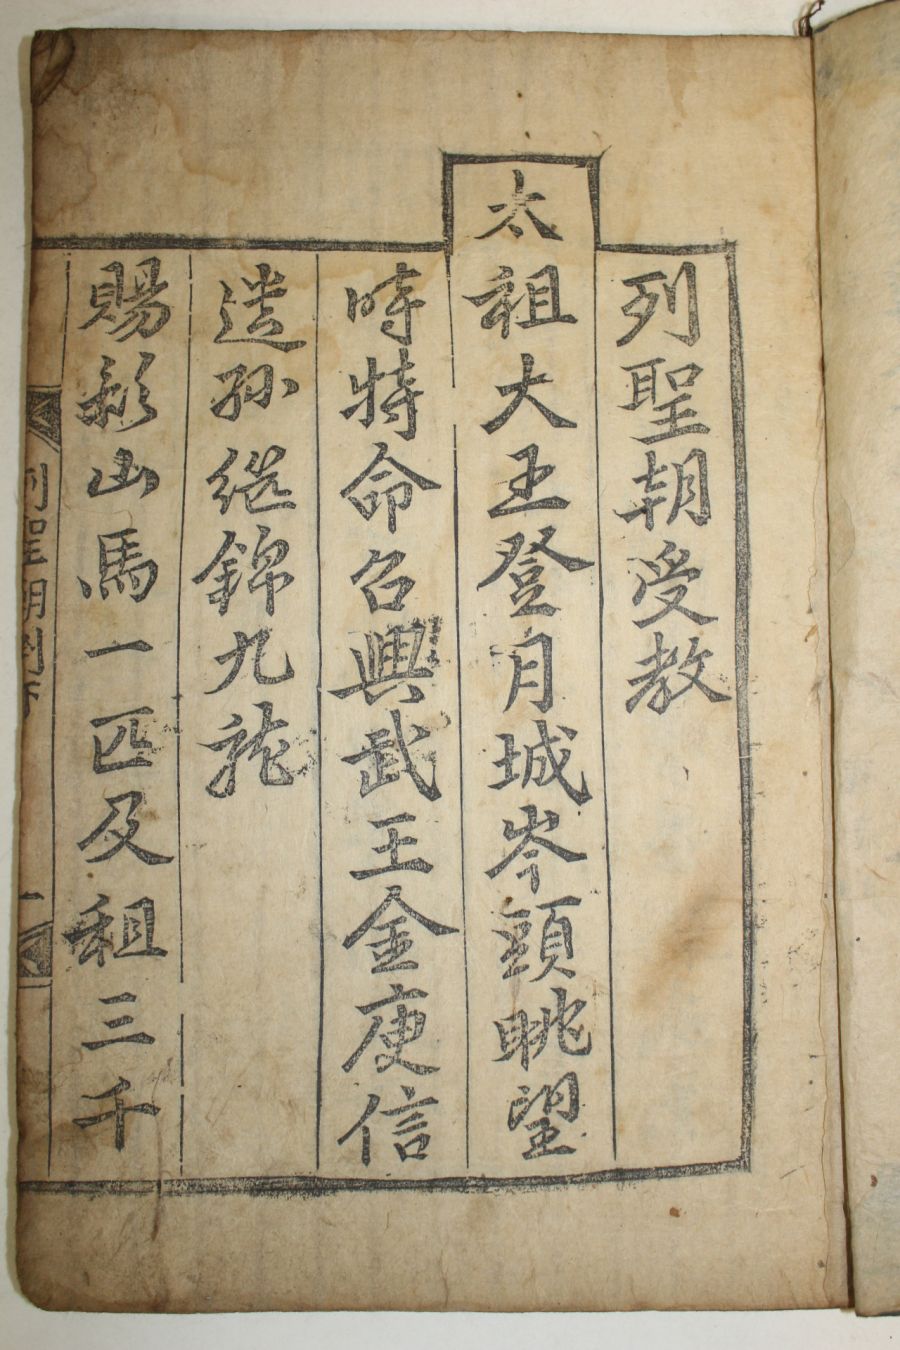 列聖朝受教
太祖大王登月城岑頭眺望
時特命召興武王金庾信
遺孫継錦九龍
賜彩山馬一匹及租三千
列聖朝列教
一